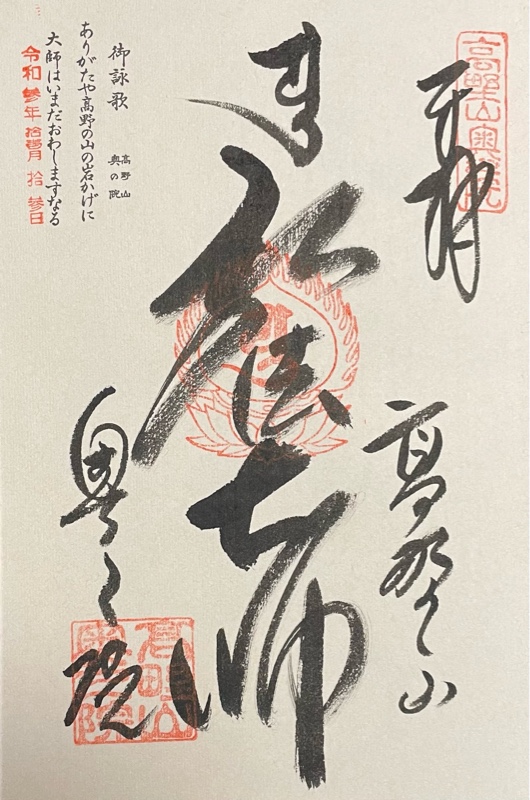 高野山奥之院
奉拝
高野山
弘法大師
奥之院
高野山奥之院
御詠歌
高野山
奥の院
ありがたや高野の山の岩かげに
大師はいまだおわしますなる
令和參年拾貳月拾參日